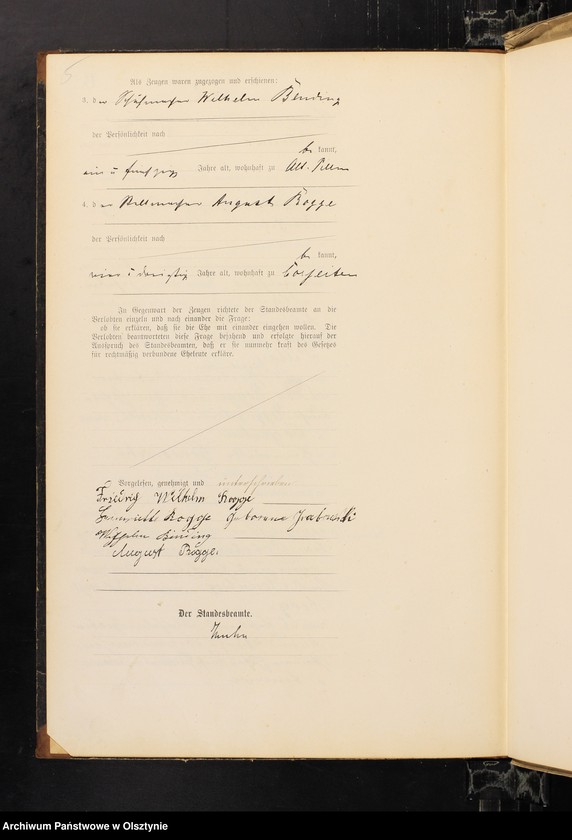 5
Als Zeugen waren zugezogen und erschienen:
3. der Schuhmacher Wilhelm Bensing
der Persönlichkeit nach
be kannt,
ein u fünfzig Jahre alt, wohnhaft zu Alt-Pillau
4. der Stellmacher August Rogge
der Persönlichkeit nach
be kannt,
vier u dreißig Jahre alt, wohnhaft zu Corjeiten
In Gegenwart der Zeugen richtete der Standesbeamte an die
Verlobten einzeln und nach einander die Frage:
ob sie erklären, daß sie die Ehe mit einander eingehen wollen. Die
Verlobten beantworteten diese Frage bejahend und erfolgte hierauf der
Ausspruch des Standesbeamten, daß er sie nunmehr kraft des Gesetzes
für rechtmäßig verbundene Eheleute erkläre.
Vorgelesen, genehmigt und unterschrieben
Friedrich Wilhelm Rogge
Rogge geborene
Wilhelm Bensing
August Rogge.
Der Standesbeamte.
Archiwum Państwowe w Olsztynie